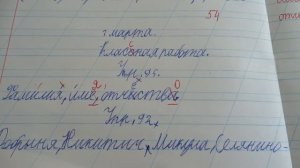 54
7 марта.
Классная работа.
Упр. 95.
Фамилия, имя, отчество
Упр. 92.
Добрыня Никитич, Микула Селянино-